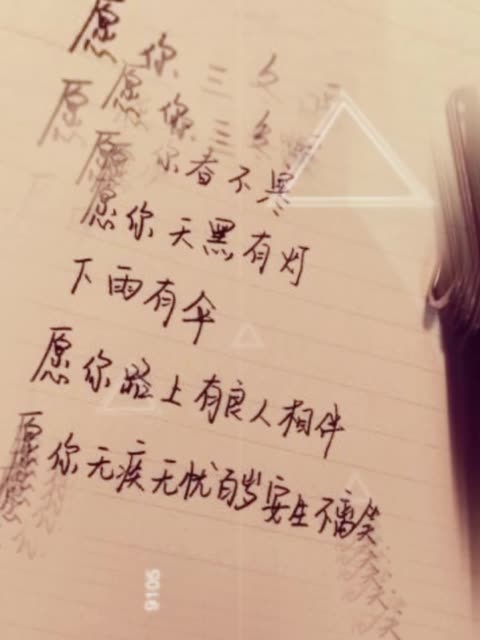 愿你三冬
愿你春不寒
愿你天黑有灯
下雨有伞
愿你路上有良人相伴
愿你无疾无忧百岁安生不离笑
9105